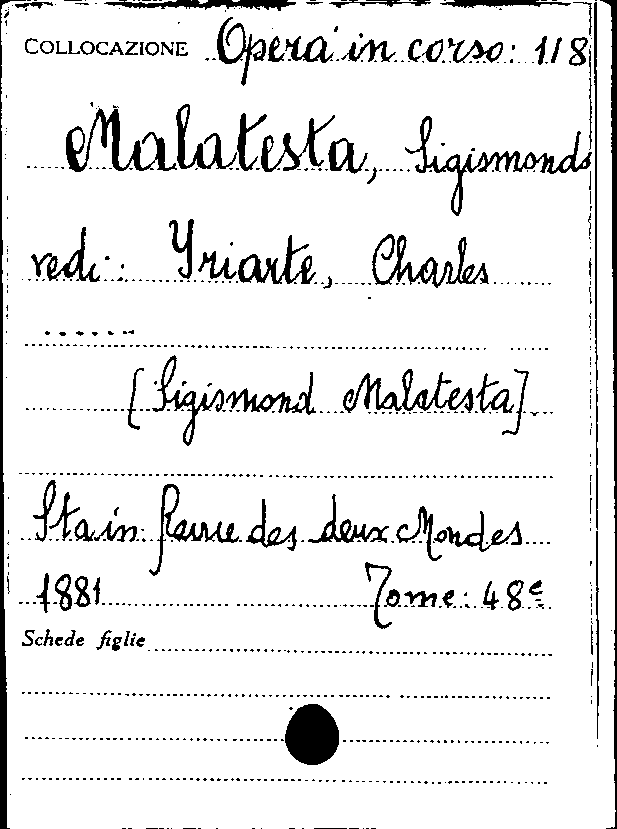 COLLOCAZIONE Opera in corso: 118
Malatesta, Sigismondo
vedi: Yriarte, Charles
.......
[Sigismond Malatesta].
Sta in: Revue des deux Mondes
1881 Tome: 48e
Schede figlie